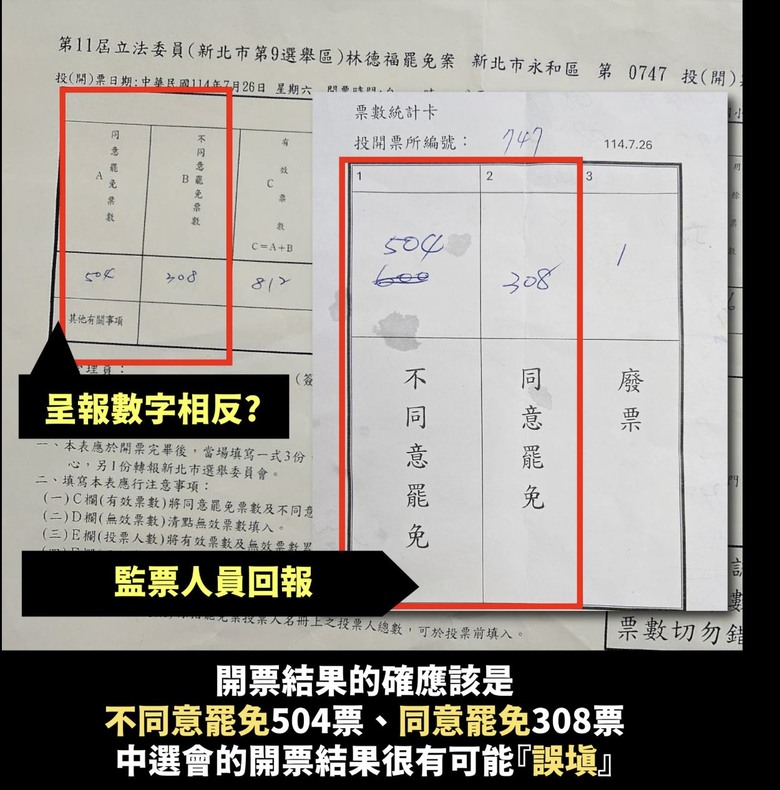 第11屆立法委員(新北市第9選舉區)林德福罷免案 新北市永和區 第 0747 投(開)
投(開)票日期:中華民國114年7月26日 星期六
同意罷免票數
A
不同意罷免票數
B
有效票數
C
C=A+B
504
308
812
其他有關事項
票數統計卡
投開票所編號：
747
114.7.26
1
2
3
504
600
308
1
不同意罷免
同意罷免
廢票
呈報數字相反?
一、本表應於開票完畢後，當場填寫一式3份
心，另1份轉報新北市選舉委員會。
二、填寫本表應行注意事項：
(一)C欄(有效票數)將同意罷免票數及不同意
(二)D欄(無效票數)清點無效票數填入。
(三)E欄(投票人數)將有效票數及無效票數累
監票人員回報
投票人名冊上之投票人總數，可於投票前填入。
票數切勿錯
開票結果的確應該是
不同意罷免504票、同意罷免308票
中選會的開票結果很有可能『誤填』